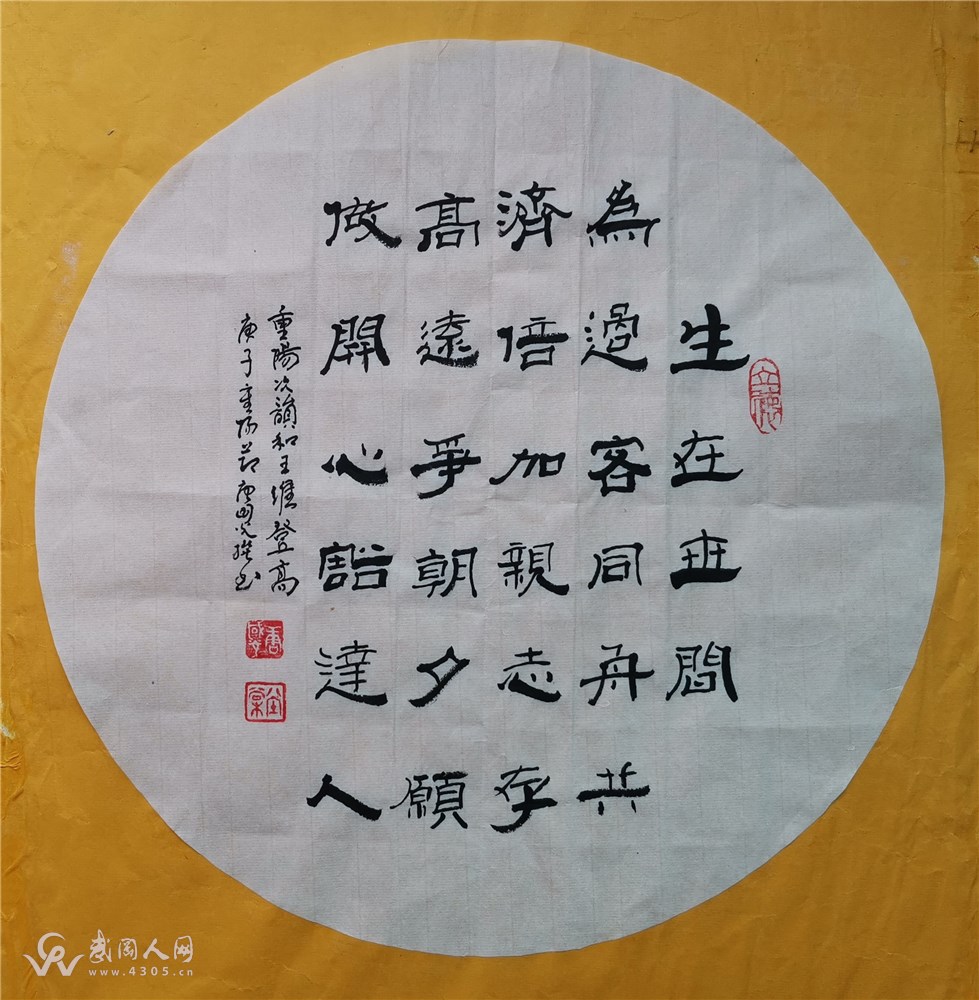 生在世間
為過客同舟共
濟倍加親志存
高遠爭朝夕願
做開心豁達人
重陽次韻和王維登高
庚子重陽節唐國光撰书
立德
武冈人网
www.4305.cn